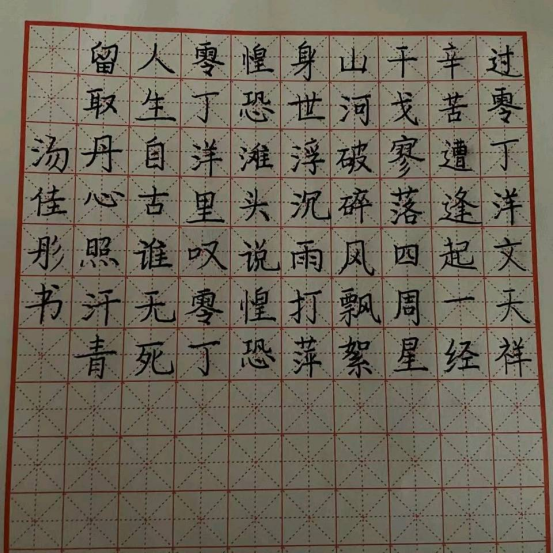 过零丁洋文天祥
辛苦遭逢起一经
干戈寥落四周星
山河破碎风飘絮
身世浮沉雨打萍
惶恐滩头说惶恐
零丁洋里叹零丁
人生自古谁无死
留取丹心照汗青
汤佳彤书